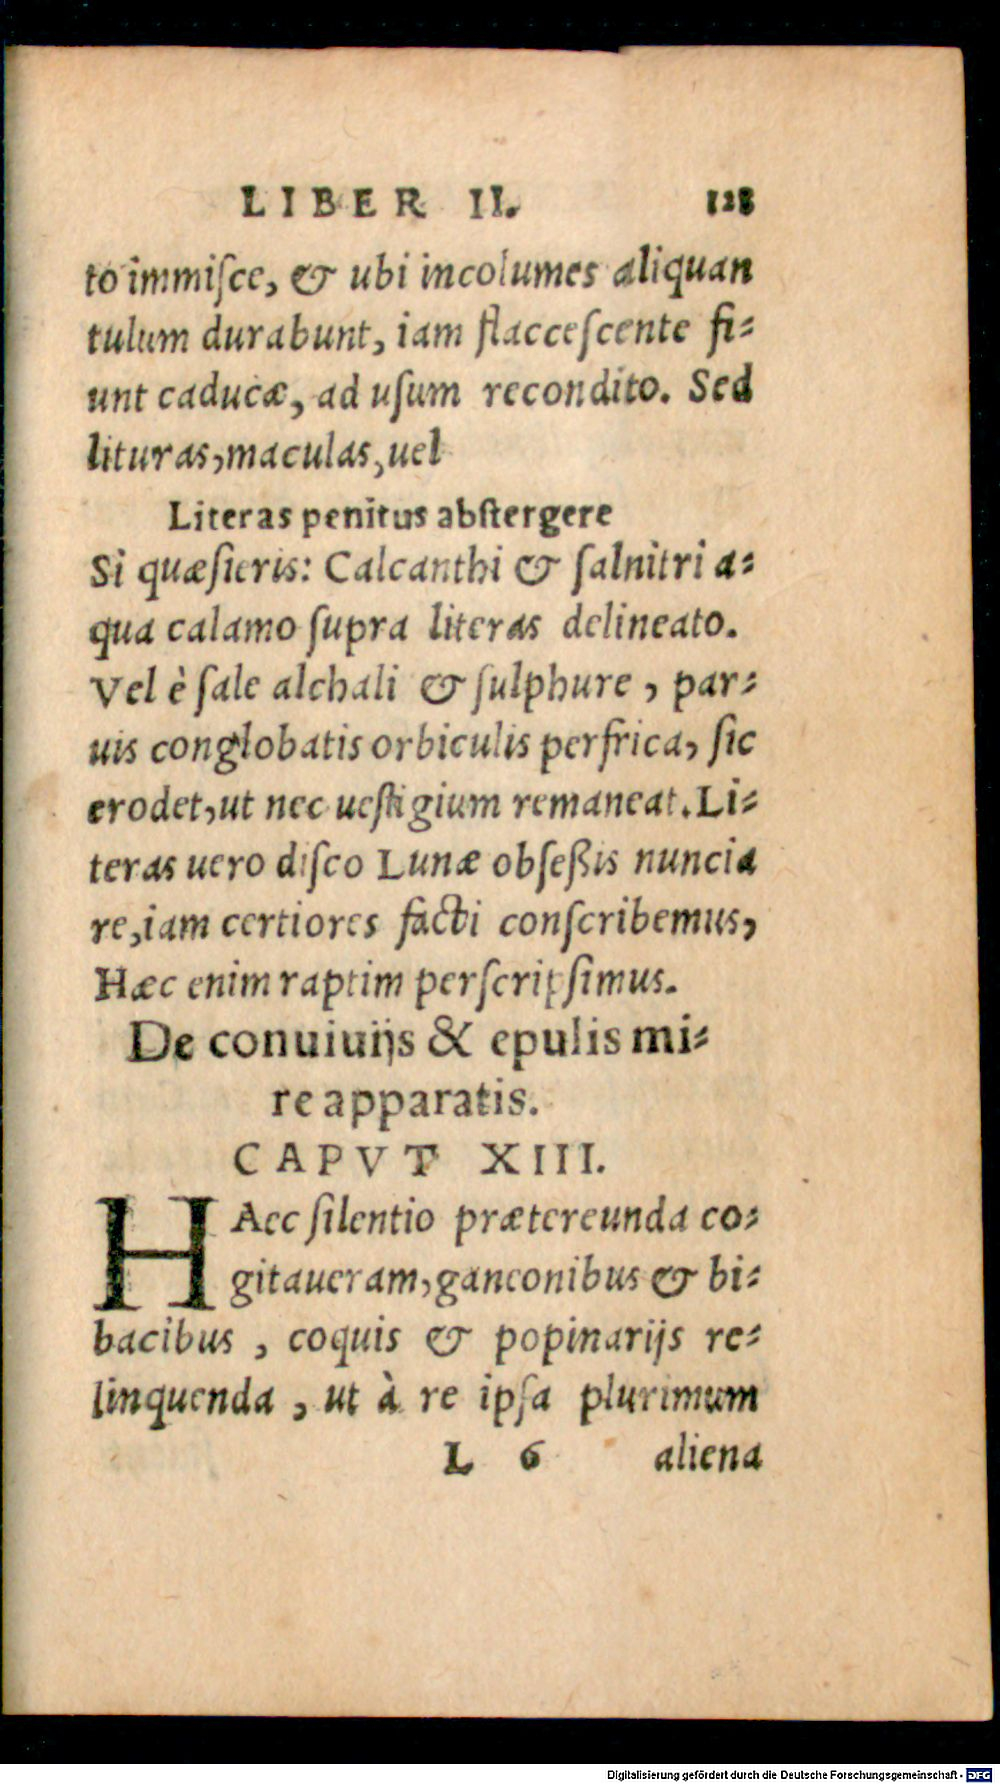 LIBER II. 128
to immiſce, & ubi incolumes aliquan
tulum durabunt, iam flacceſcente fi⸗
unt caducæ, ad uſum recondito. Sed
lituras, maculas, uel
Literas penitus abſtergere
Si quæſieris: Calcanthi & ſalnitri a⸗
qua calamo ſupra literas delineato.
Vel è ſale alchali & ſulphure, par⸗
uis conglobatis orbiculis perfrica, ſic
erodet, ut nec ueſtigium remaneat. Li⸗
teras uero diſco Lunæ obſeßis nuncia
re, iam certiores facti conſcribemus,
Hæc enim raptim perſcripſimus.
De conuiuijs & epulis mi⸗
re apparatis.
CAPVT XIII.
HAec ſilentio prætereunda co⸗
gitaueram, ganeonibus & bi⸗
bacibus, coquis & popinarijs re⸗
linquenda, ut à re ipſa plurimum
L 6 aliena
Digitalisierung gefördert durch die Deutsche Forschungsgemeinschaft - DFG